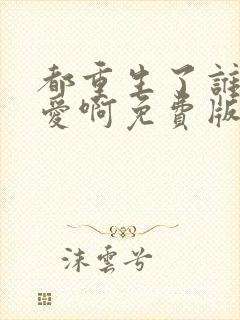 都重生了誰
愛啊免費版
沫雲兮